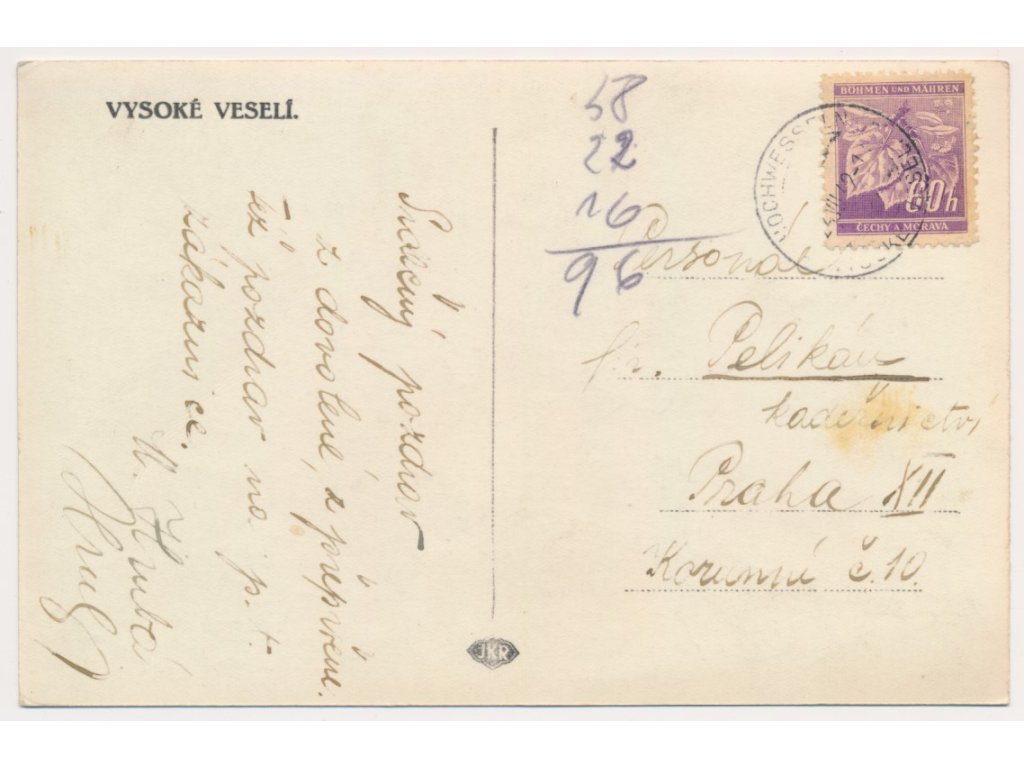 VYSOKÉ VESELÍ.
Srdečný pozdrav
z dovolené,
též pozdrav na p. t.
zákaznice.
58
22
16
96
BÖHMEN UND MÄHREN
60 h
ČECHY A MORAVA
HOCHWESSELN
Personál
fir. Pelikán
kadeřnictví
Praha XII
Korunní č. 10.
JKR